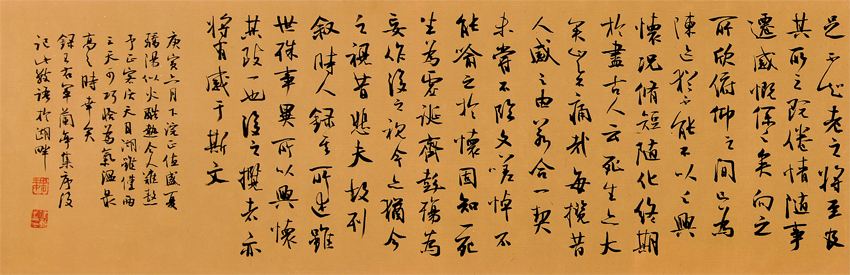 足不知老之將至及
其所之既倦情隨事
遷感慨係之矣向之
所欣俯仰之間已為
陳迹猶不能不以之興
懷況脩短隨化終期
於盡古人云死生亦大
矣豈不痛哉每攬昔
人感之由若合一契
未嘗不臨文嗟悼不
能喻之於懷固知一死
生為虛誕齊彭殤為
妄作後之視今亦猶今
之視昔悲夫故列
敘時人錄其所述雖
世殊事異所以興懷
其致一也後之攬者亦
將有感于斯文
庚寅六月下浣正值盛夏
驕陽似火酷熱令人難熬
予正寓住天目湖雖僅兩
三天可巧為氣溫最
高之時幸矣
錄王右軍蘭亭集序後
記此數語於湖畔